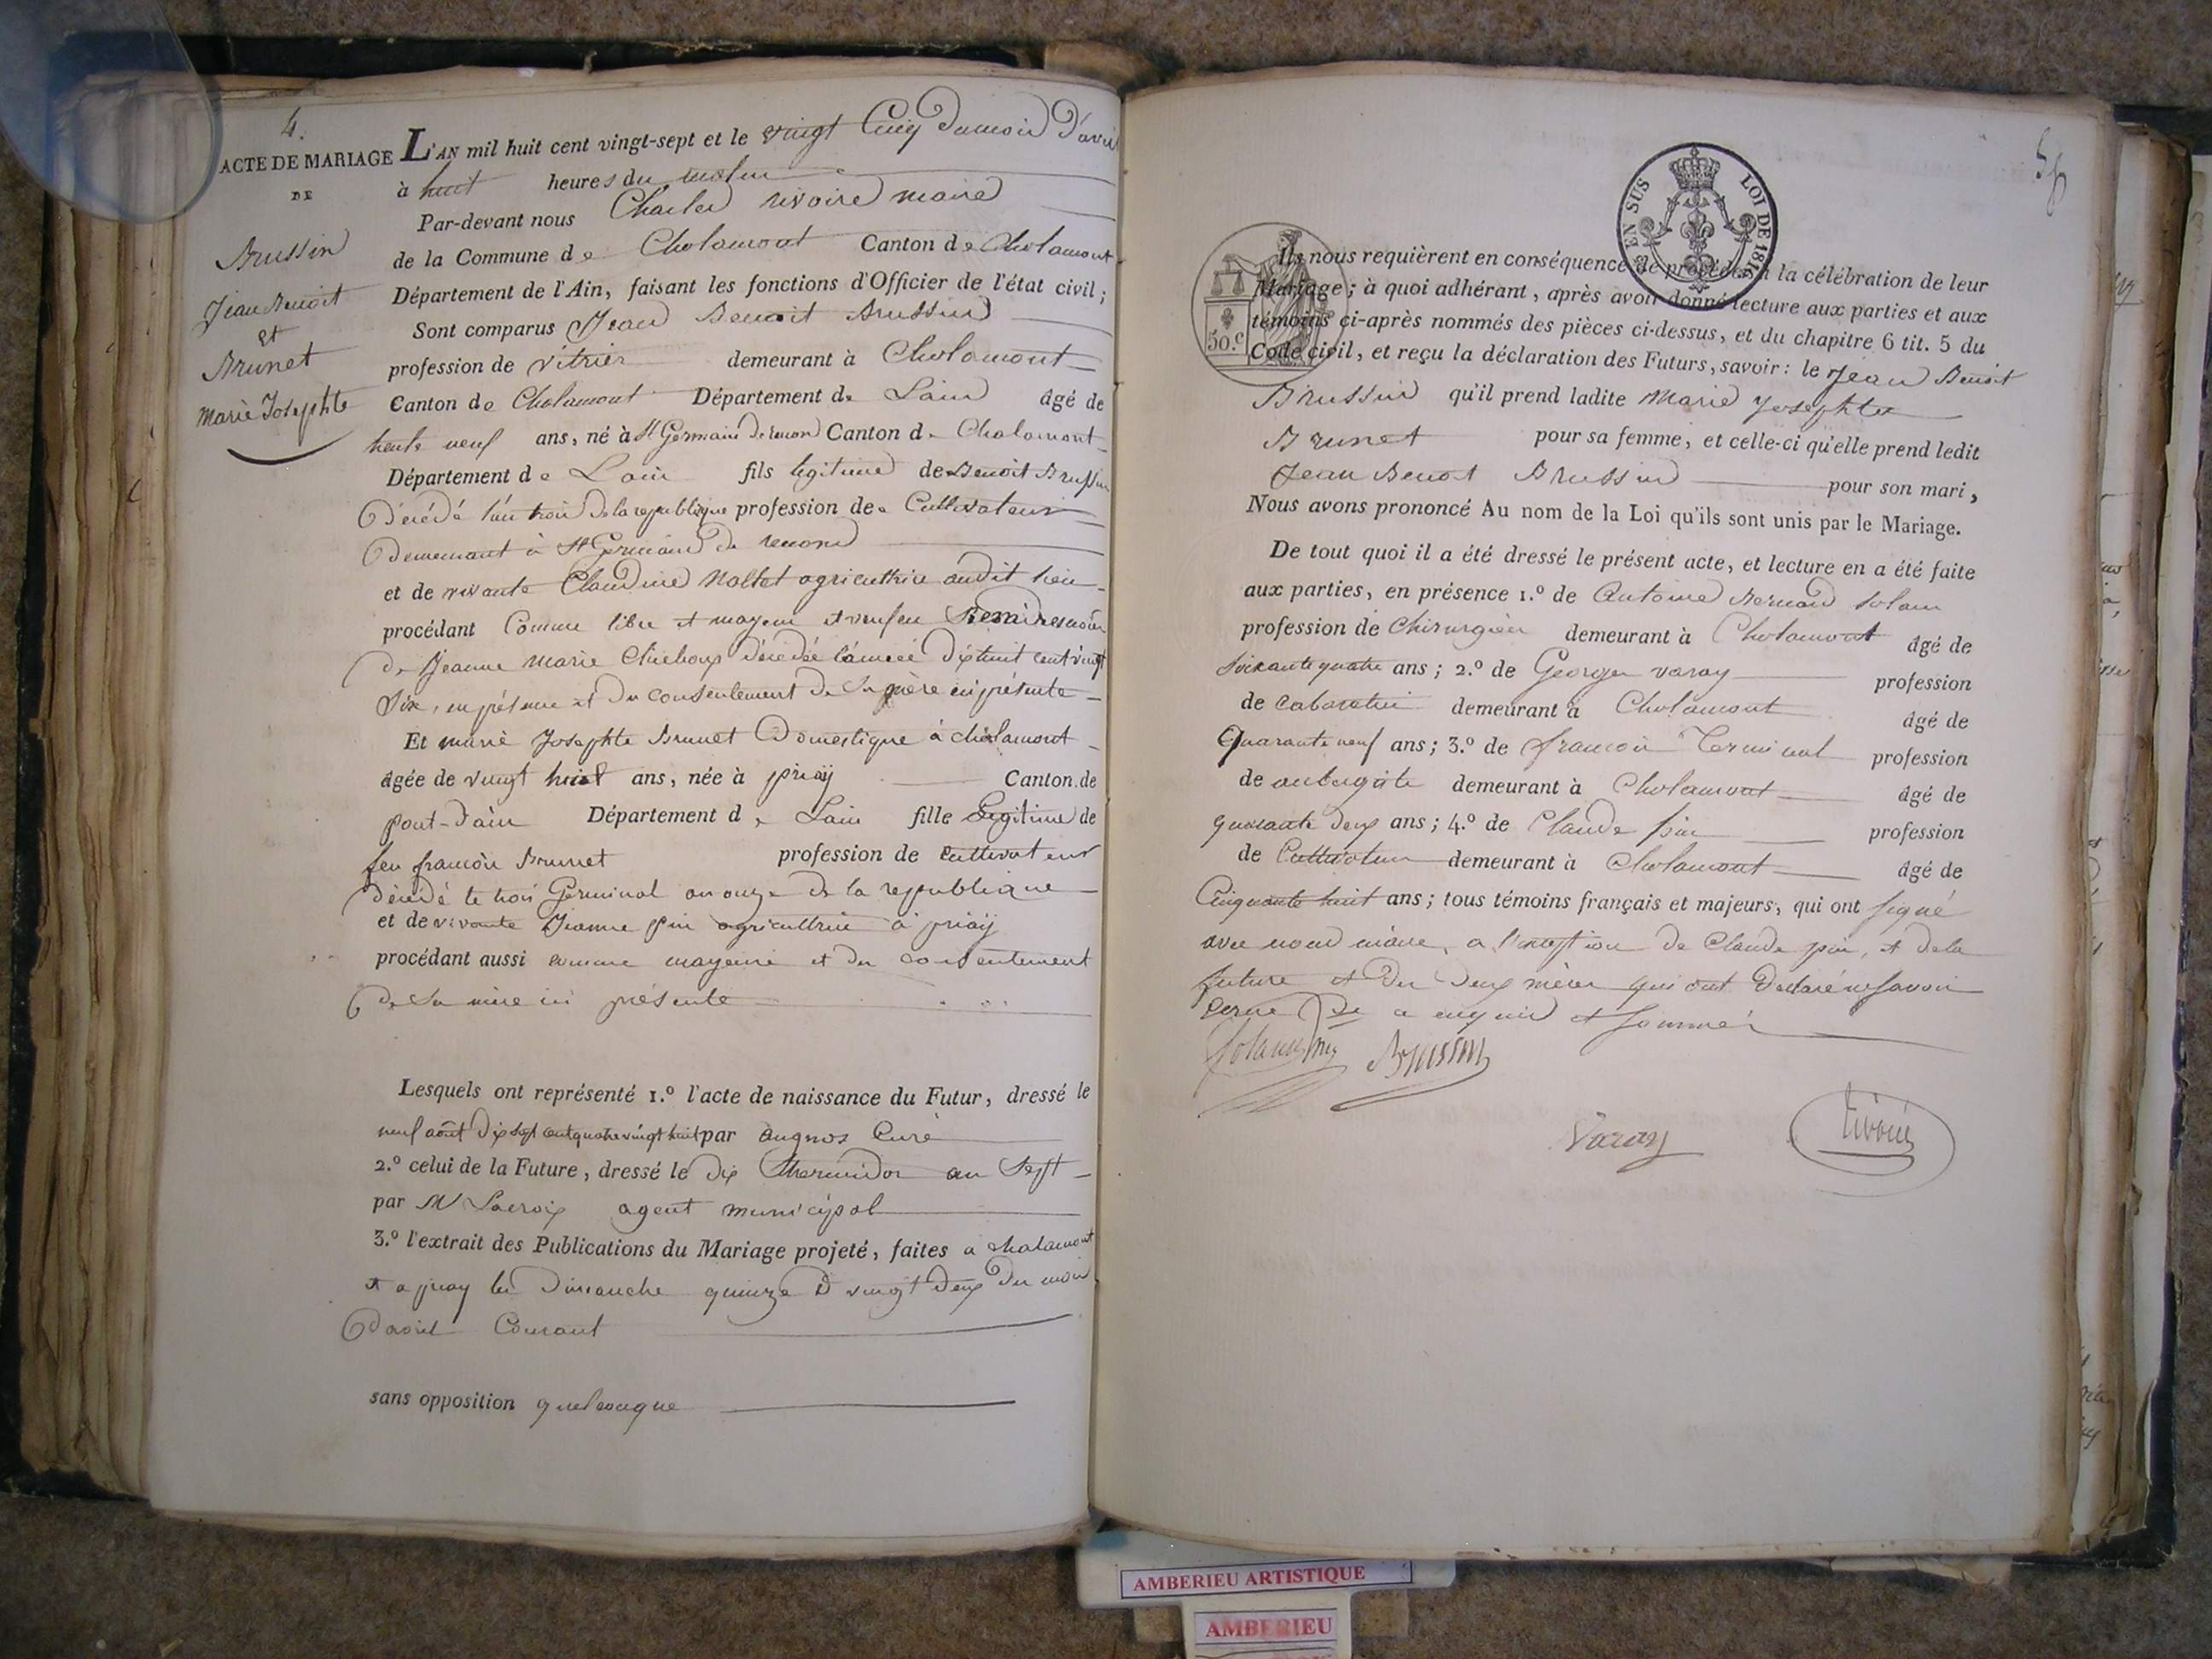 4.
ACTE DE MARIAGE
DE
Brussin
Jean Benoit
et
Brunet
Marie Josephte
L'AN mil huit cent vingt-sept et le vingt Cinq du mois d'avril
à huit heures du matin
Par-devant nous Charles rivoire maire
de la Commune de Chalamont Canton de Chalamont
Département de l'Ain, faisant les fonctions d'Officier de l'état civil;
Sont comparus Jean Benoit Brussin
profession de vitrier demeurant à Chalamont
Canton de Chalamont Département de Lain âgé de
trente neuf ans, né à St Germain de renon Canton de Chalamont
Département de Lain fils légitime de Benoit Brussin
décédé l'an trois de la republique profession de Cultivateur
demeurant à St Germain de renond
et de vivante Claudine agricultrice audit lieu
procédant Comme libre et majeur et veuf en
de Jeanne Marie décédée l'année dixhuit cent vingt
Six, en présence et du consentement de sa mère ici présente
Et marie Josephte Brunet Domestique à chalamont
âgée de vingt huit ans, née à priaÿ Canton de
pont-d'ain Département de Lain fille légitime de
feu françois Brunet profession de cultivateur
décédé le trois Germinal an onze de la republique
et de vivante Jeanne pin agricultrice à priaÿ
procédant aussi comme majeure et du consentement
de sa mère ici présente
Lesquels ont représenté 1.º l'acte de naissance du Futur, dressé le
neuf août dix sept cent quatre vingt huit par augnos Curé
2.º celui de la Future, dressé le dix thermidor an Sept
par Mr Lacroix agent municipal
3.º l'extrait des Publications du Mariage projeté, faites a chalamont
et a priay les Dimanche quinze & vingt deux du mois
d'avril Courant
sans opposition quelconque
EN SUS
LOI DE 1816
50.c
Ils nous requièrent en conséquence de procéder à la célébration de leur
Mariage; à quoi adhérant, après avoir donné lecture aux parties et aux
témoins ci-après nommés des pièces ci-dessus, et du chapitre 6 tit. 5 du
Code civil, et reçu la déclaration des Futurs, savoir: le Jean Benoit
Brussin qu'il prend ladite Marie Josephte
Brunet pour sa femme, et celle-ci qu'elle prend ledit
Jean Benoit Brussin pour son mari,
Nous avons prononcé Au nom de la Loi qu'ils sont unis par le Mariage.
De tout quoi il a été dressé le présent acte, et lecture en a été faite
aux parties, en présence 1.º de Antoine Bernard Solann
profession de Chirurgien demeurant à Chalamont âgé de
soixante quatre ans; 2.º de Georges varay profession
de cabaretier demeurant à Chalamont âgé de
Quarante neuf ans; 3.º de françois Terminal profession
de aubergiste demeurant à Chalamont âgé de
quarante deux ans; 4.º de Claude pin profession
de Cultivateur demeurant à Chalamont âgé de
Cinquante huit ans; tous témoins français et majeurs, qui ont signé
avec nous maire, a l'exception de Claude pin, et de la
future et des deux mères qui ont déclaré ne savoir
de ce enquis et sommés
Brussin
Varay
rivoire
AMBERIEU ARTISTIQUE
AMBERIEU